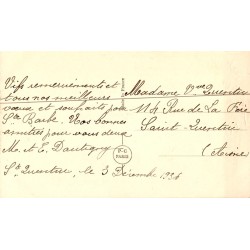 Vifs remerciements et
tous nos meilleurs
vœux et souhaits pour
Ste Barbe. Nos bonnes
amitiés pour vous deux
M. et E. Dautigny
St Quentin, le 3 Décembre 1936
P-C
PARIS
Madame Vve Quentin
114 Rue de La Fère
Saint-Quentin
(Aisne)